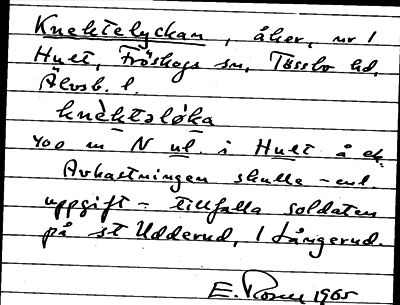 Knektelyckan, åker, nr 1
Hult, Fröskogs sn, Tössbo hd,
Älvsb. l.
knèktəlø̀ka
400 m N ul. i Hult å ek.
Avkastningen skulle – enl
uppgift – tillfalla soldaten
på st Udderud, 1 Långerud.
E. Rosen 1965